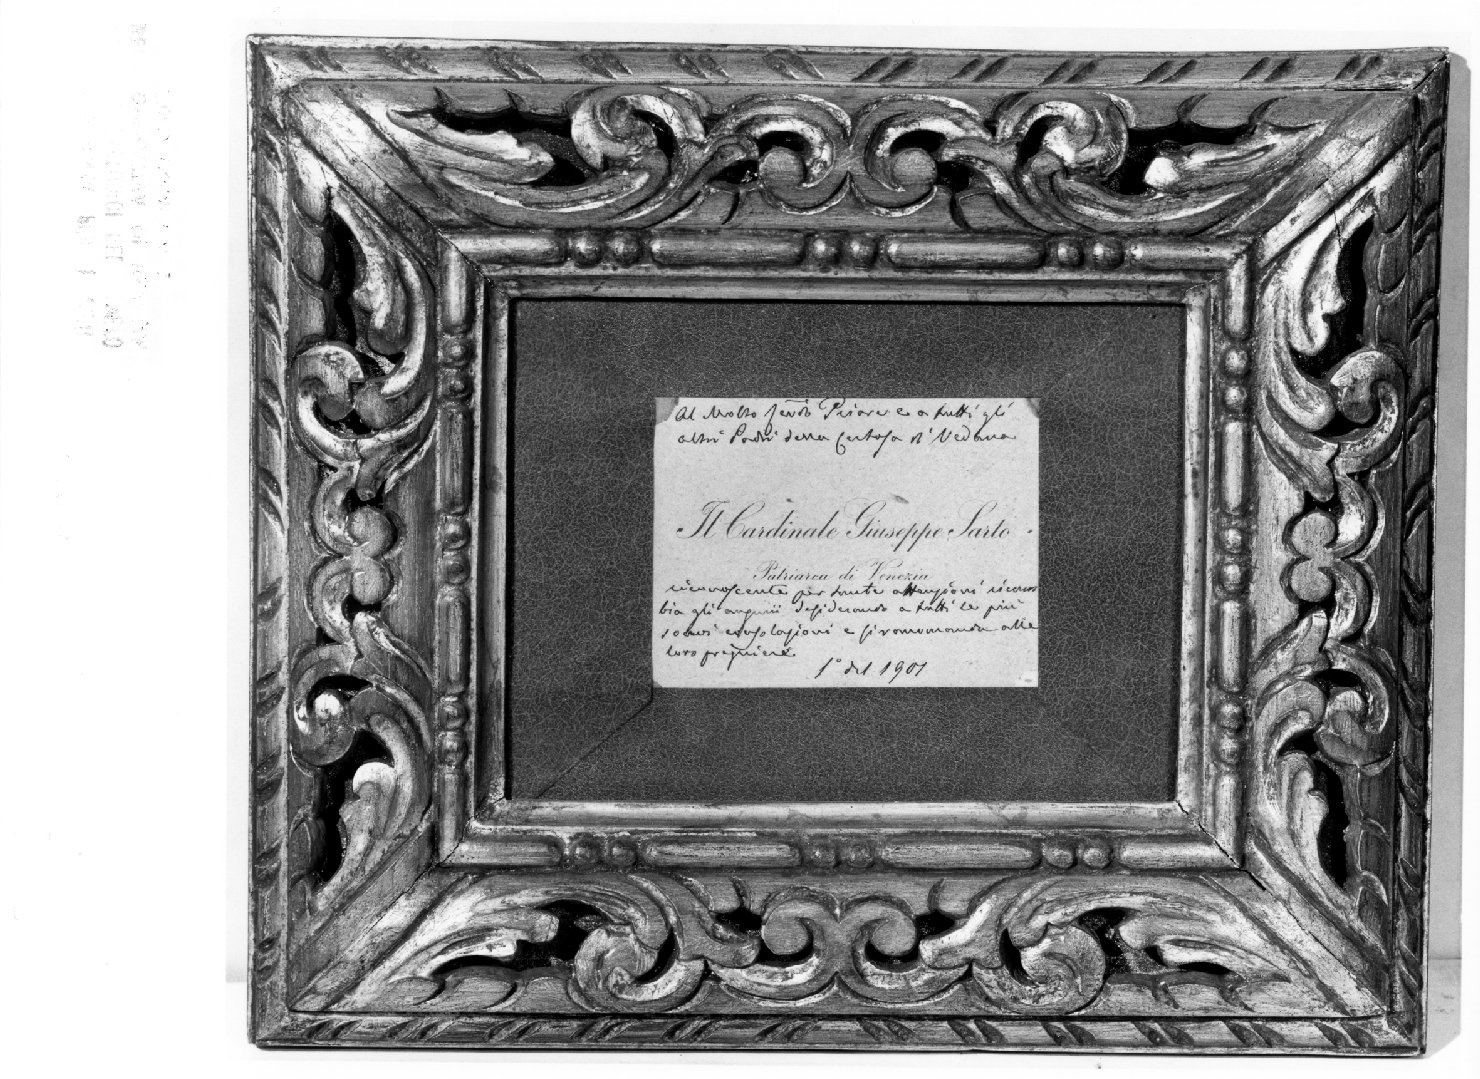 Al Molto Rev.do Priore e a tutti gli
altri Padri della Certosa di Vedana
Il Cardinale Giuseppe Sarto
Patriarca di Venezia
riconoscente per tante attenzioni ricam
bia gli augurii desiderando a tutti le più
soavi consolazioni e si raccomanda alle
loro preghiere.
1° del 1901